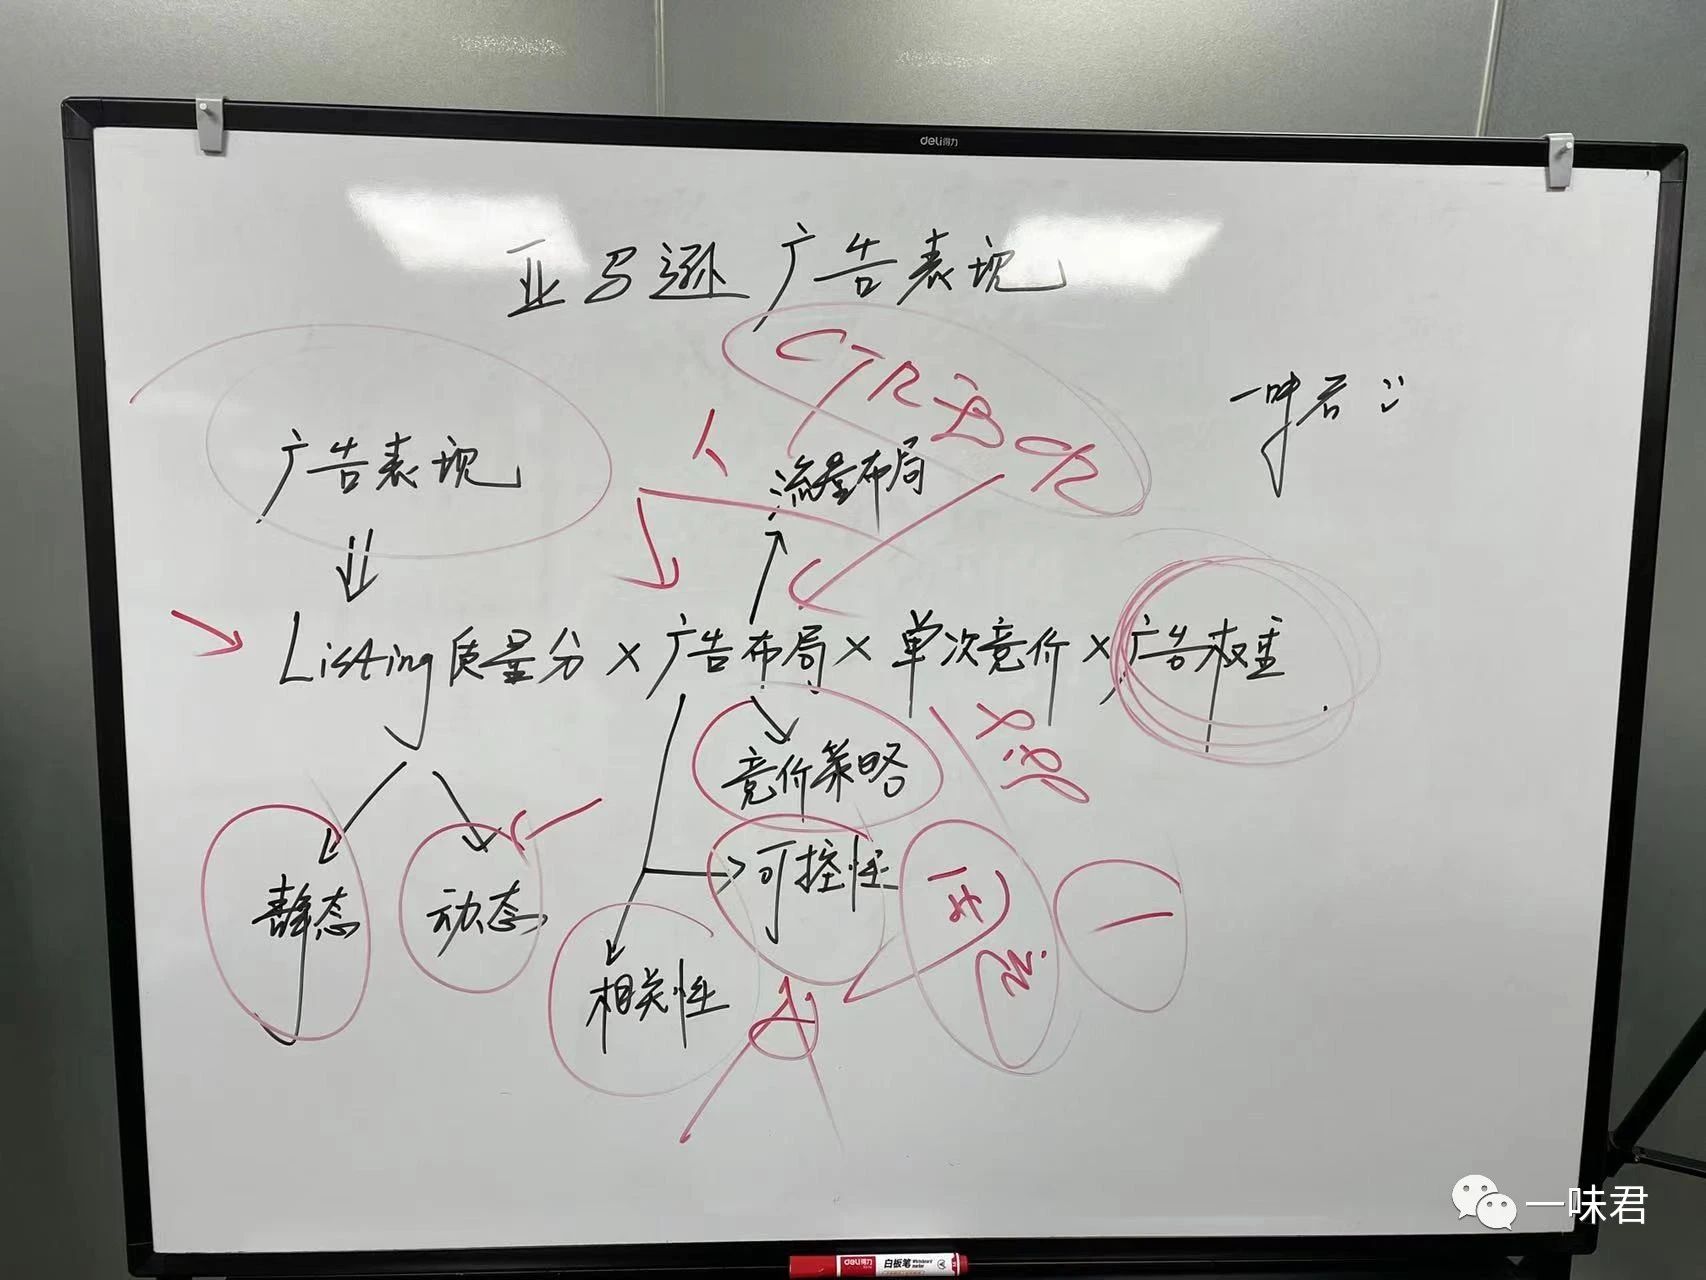 deli得力
亚马逊广告表现
CTR
CR
一味君
广告表现
流量布局
Listing质量分×广告布局×单次竞价×广告权重
竞价策略
静态
动态
可控性
相关性
一味君
deli得力 白板笔